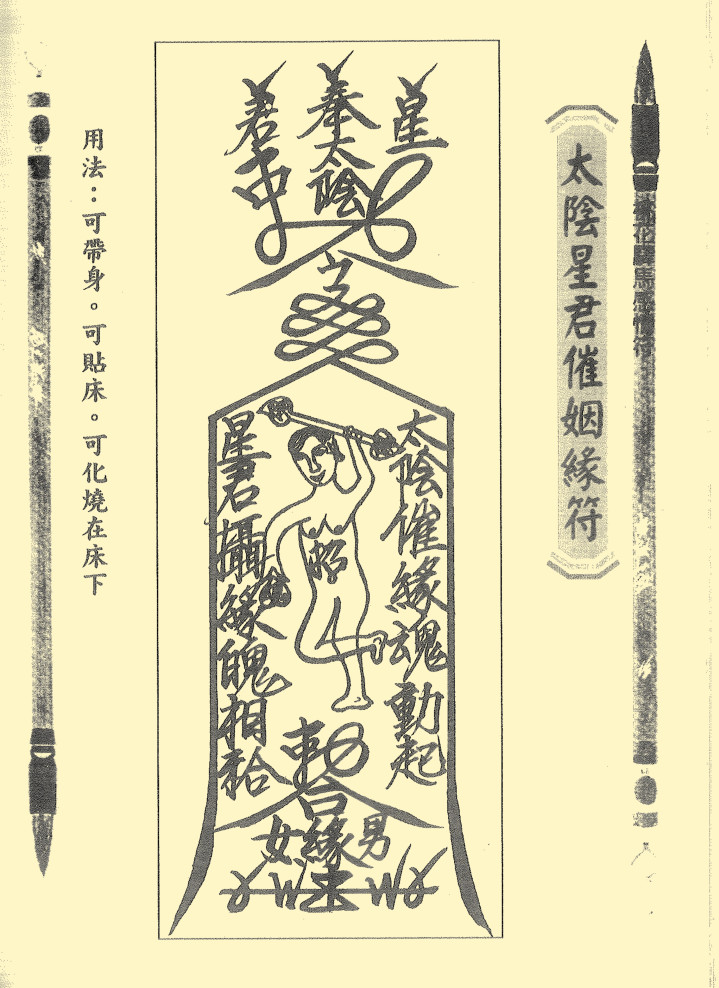 太陰星君催姻緣符
星
奉太陰
君
太陰催緣魂動起
招
星君攝緣魄相
合
男
緣
女
用法：可帶身。可貼床。可化燒在床下